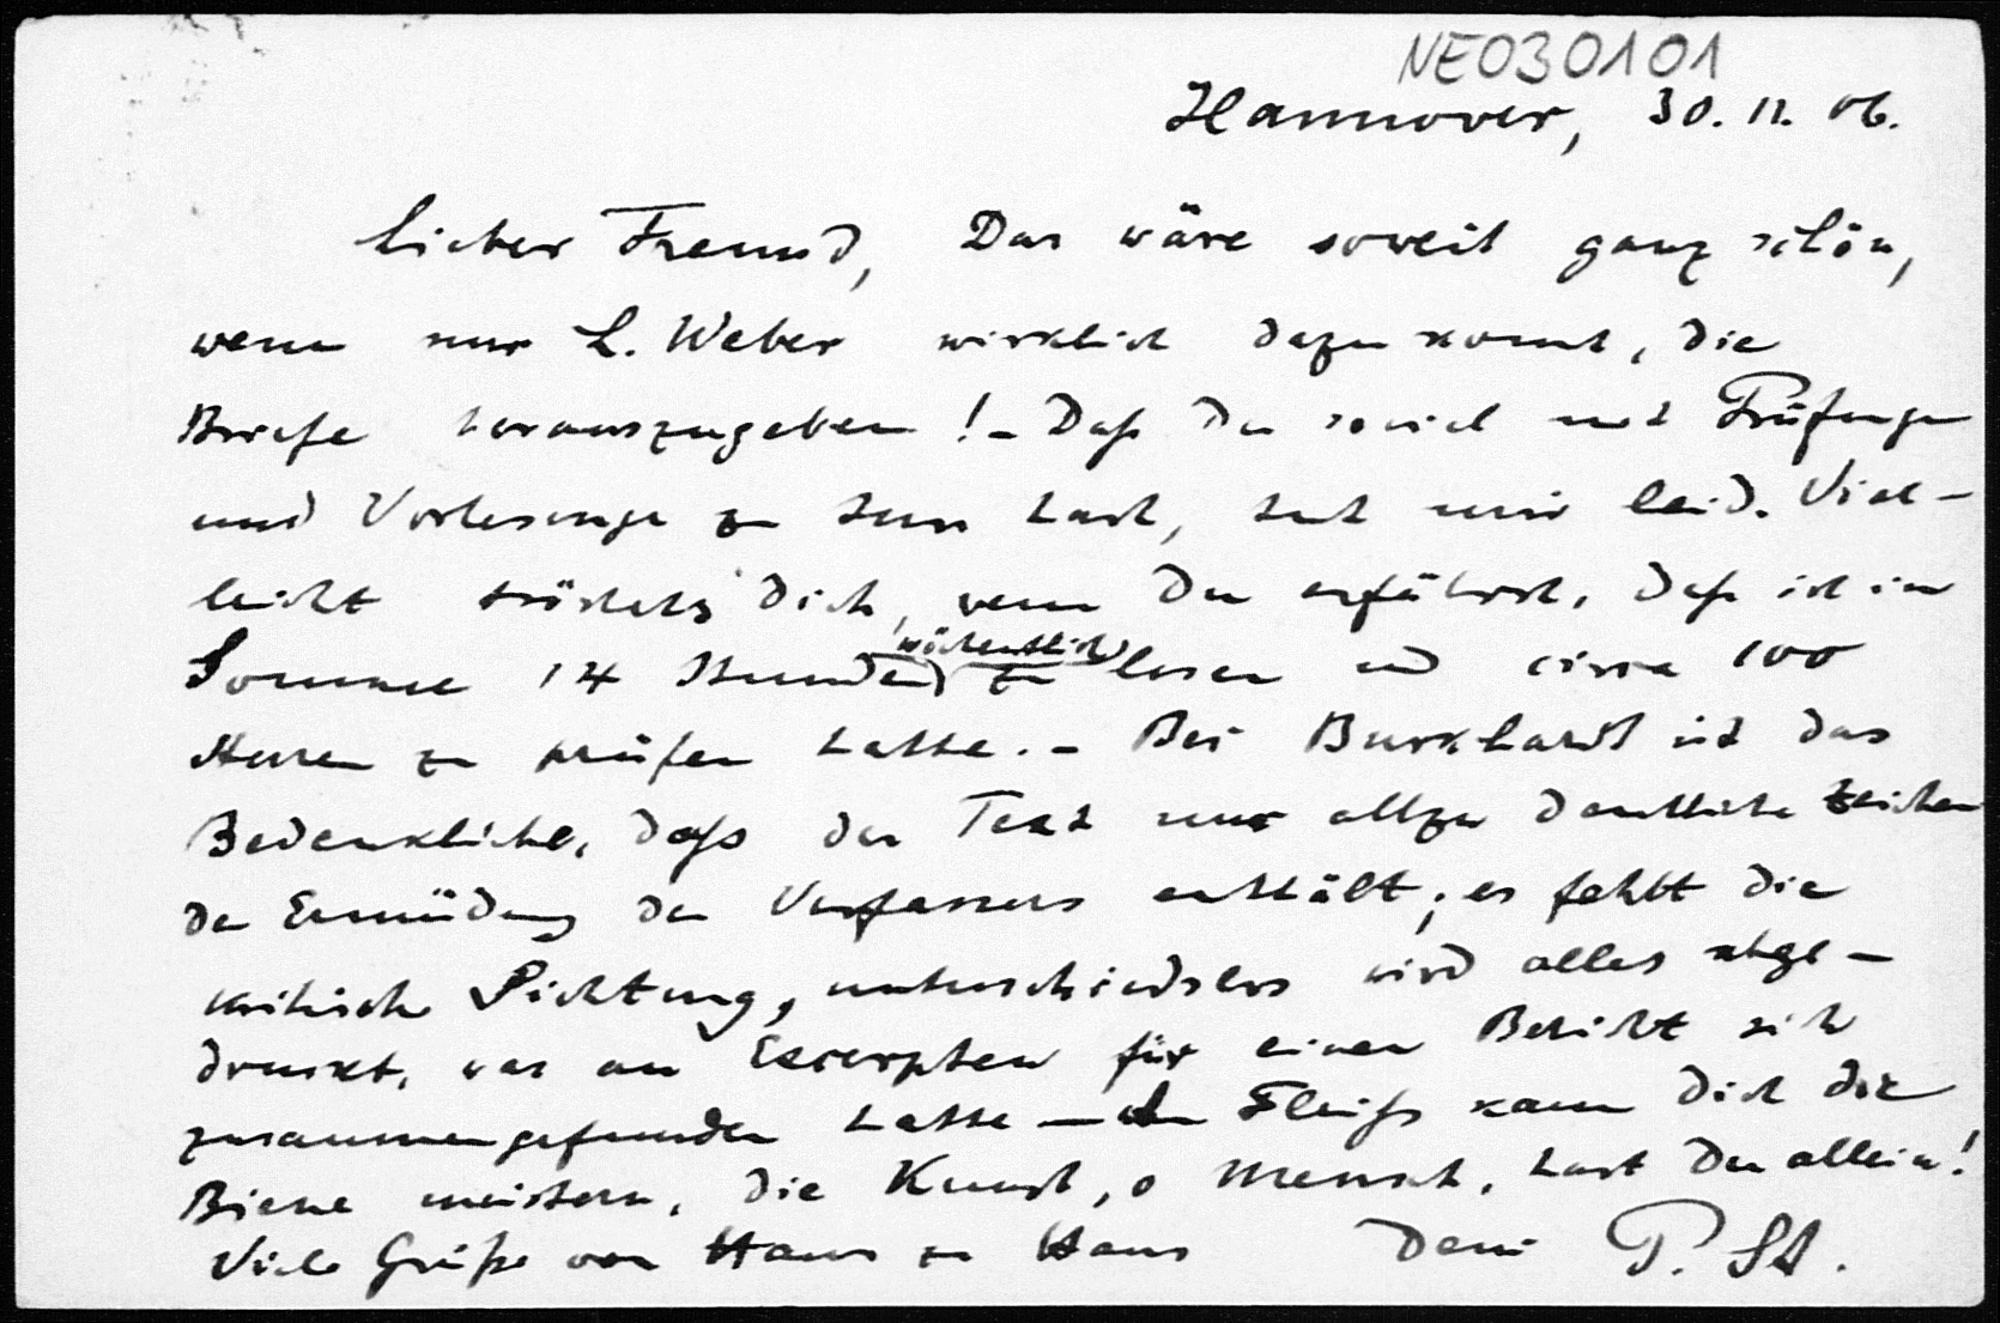 NE030101
Hannover, 30. 11. 06.
Lieber Freund, Das wäre soweit ganz schön,
wenn nur L. Weber wirklich dazu kommt, die
Briefe herauszugeben! – Daß Du soviel mit Prüfungen
und Vorlesungen zu tun hast, tut mir leid. Viel-
leicht tröstets Dich, wenn Du erfährst, daß ich im
wöchentlich
Sommer 14 Stunden zu lesen und circa 100
Herren zu prüfen hatte. – Bei Burkhardt ist das
Bedenkliche, dass der Text nur allzu deutliche Zeichen
der Ermüdung des Verfassers enthält; es fehlt die
kritische Sichtung, unterschiedslos wird alles abge-
druckt, was an Excerpten für einen Bericht sich
zusammengefunden hatte — In Fleiß kann Dich die
Biene meistern, die Kunst, o Mensch, hast Du allein!
Viele Grüße von Haus zu Haus Dein P. St.